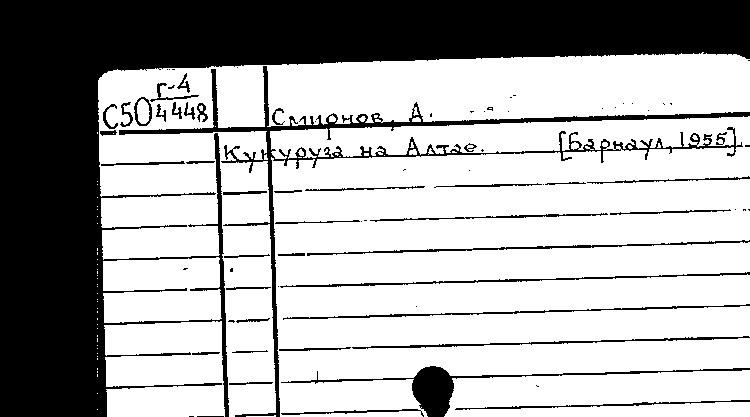 С50 г-4
4448
Смирнов, А.
Кукуруза на Алтае. [Барнаул, 1955].